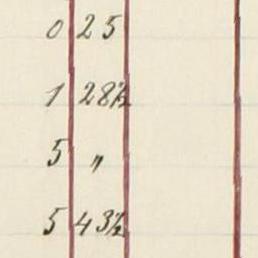 0 25
1 28½
5 "
5 43½